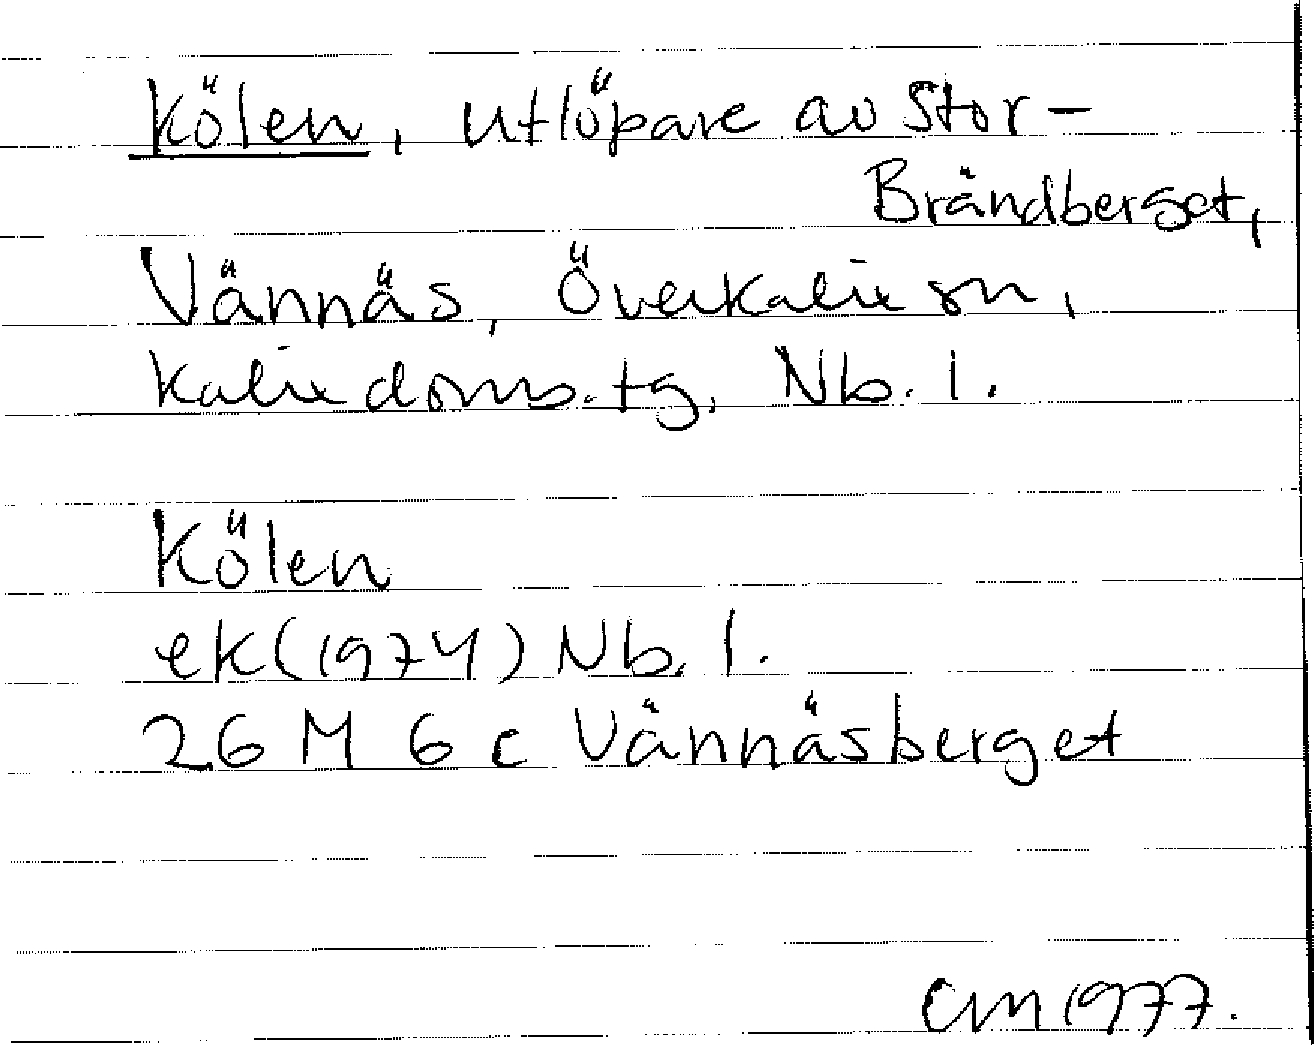 Kölen, utlöpare av Stor-
Brändberget,
Vännäs, Överkalix sn,
Kalix doms. tg, Nb. l.
Kölen
ek (1974) Nb. l.
26 M 6 c Vännäsberget
CM 1977.